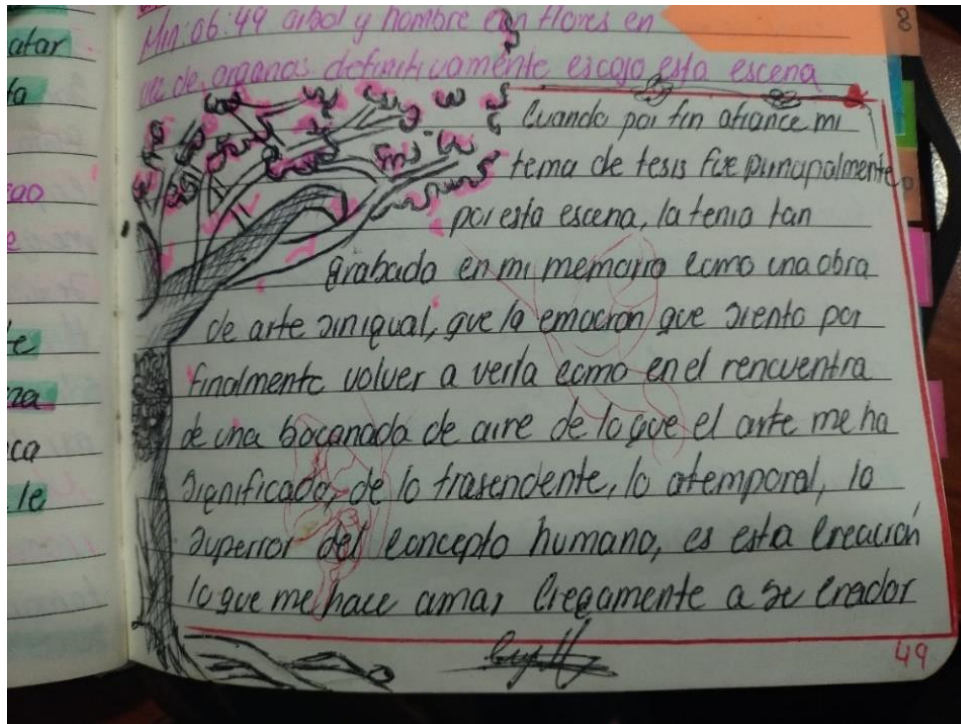 Min: 06:49 arbol y hombre con flores en
vez de organos definitivamente escojo esta escena
Cuando por fin afiance mi
tema de tesis fue principalmente
por esta escena, la tenia tan
grabado en mi memoria como una obra
de arte sin igual, que la emoción que siento por
finalmente volver a verla como en el rencuentra
de una bocanada de aire de lo que el arte me ha
significado, de lo trasendente, lo atemporal, lo
superior del concepto humano, es esta creación
lo que me hace amar ciegamente a su creador
49
8
atar
ta
ao
e
te
na
ca
le